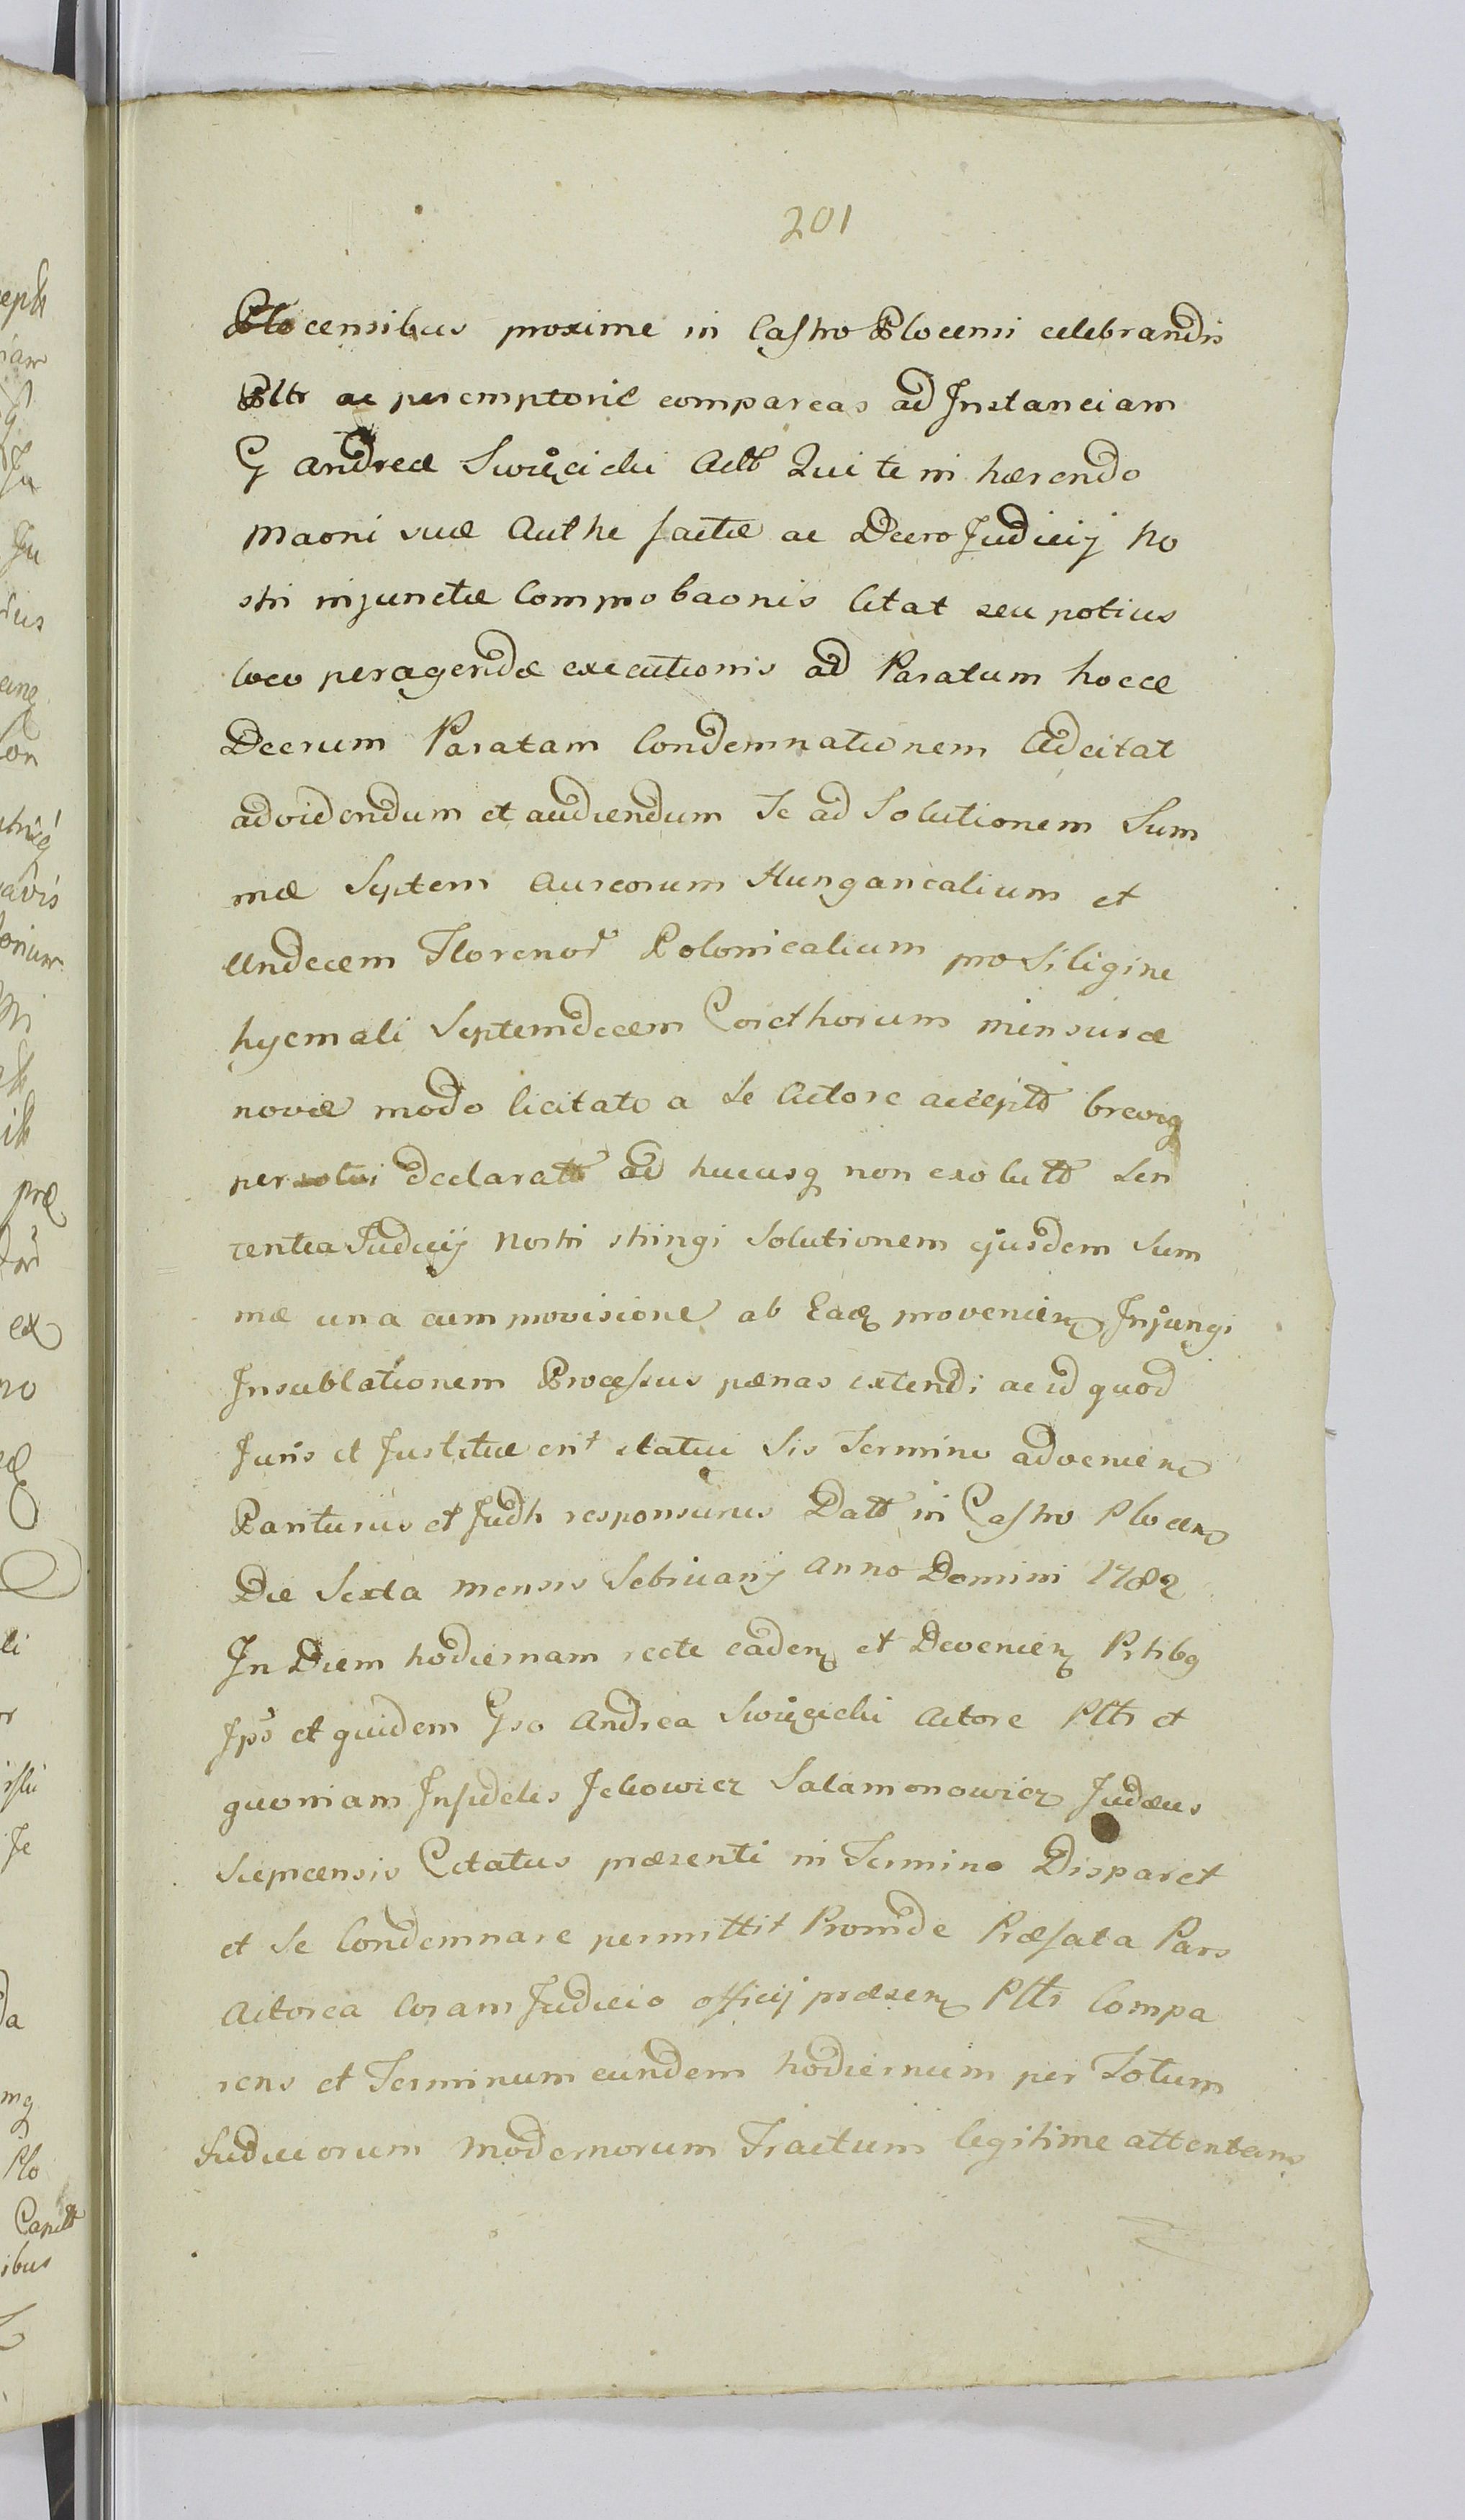 201
Plocensibus proxime in Castro Plocensi celebrandis
Pltr ac peremptorie compareas ad Instanciam
G Andreæ Swięcicki Actt Qui te in hærendo
Maoni suæ Authe factæ ac Decro Judicij No
stri injunctæ Comprobaonis Citat seu potius
loco peragendæ executionis ad Paratum hocce
Decrum Paratam Condemnationem Adcitat
ad videndum et audiendum Te ad Solutionem Sum
mæ Septem Aureorum Hungaricalium et
Undecem Florenor Polonicalium pro Siligine
hyemali Septemdecem Corethorum mensuræ
novæ modo licitato a Se Actore acceptt breviq
persolvi declaratt ad hucusq non exolutt Sen
tentia Judicij Nostri stringi Solutionem ejusdem Sum
mæ una cum provisione ab Eadq provenien Injungi
In sublationem Processus pænas extendi ac id quod
Juris et Justitiæ erit statui Sis Termino advenien
Pariturus et Judtr responsurus Datt in Castro Plocen
Die Sexta Mensis Februarij Anno Domini 1782
In Diem hodiernam recte caden et Devenien Prtibq
Ips et quidem Gso Andrea Swięcicki Actore Pltr et
quoniam Infidelis Jckowicz Salamonowicz Judæus
Siepcensis Citatus præsenti in Termino Disparet
et Se Condemnare permittit Proinde Præfata Pars
Actorea Coram Judicio officij præsen Pltr Compa
rens et Terminum eundem hodiernum per Totum
Judiciorum Modernorum Tractum legitime attentans